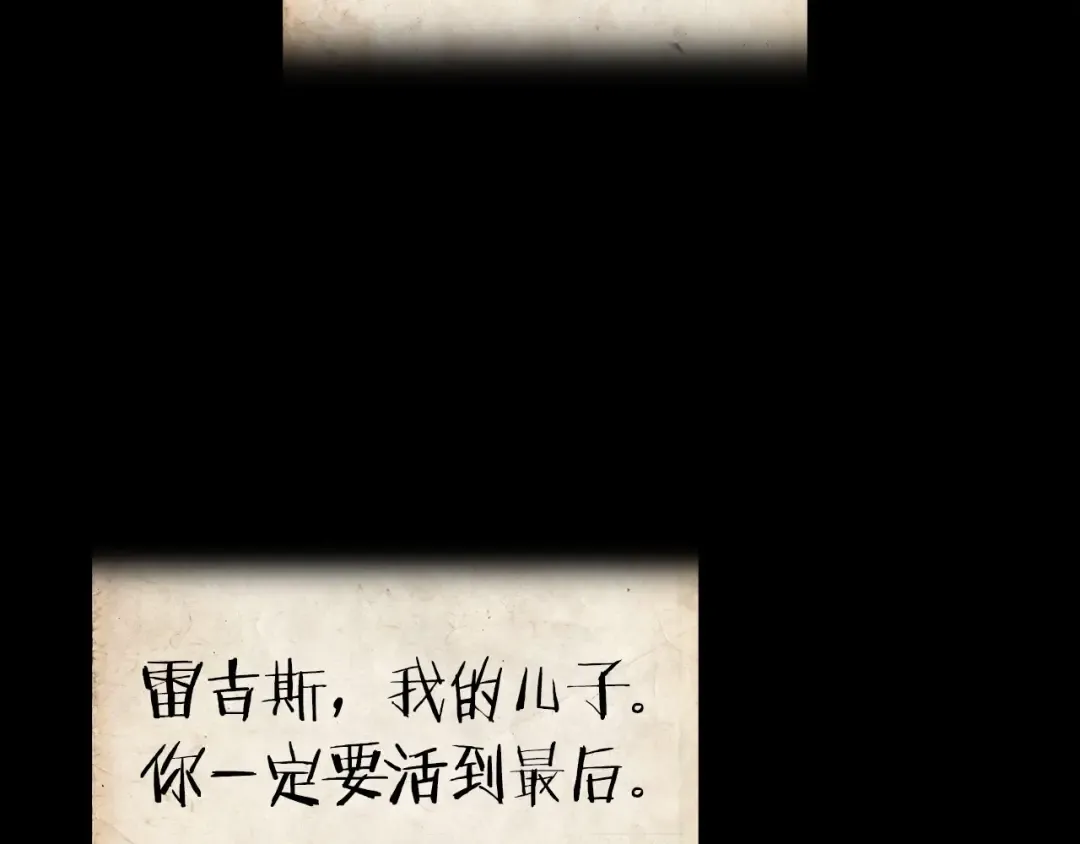 雷古斯，我的儿子。
你一定要活到最后。